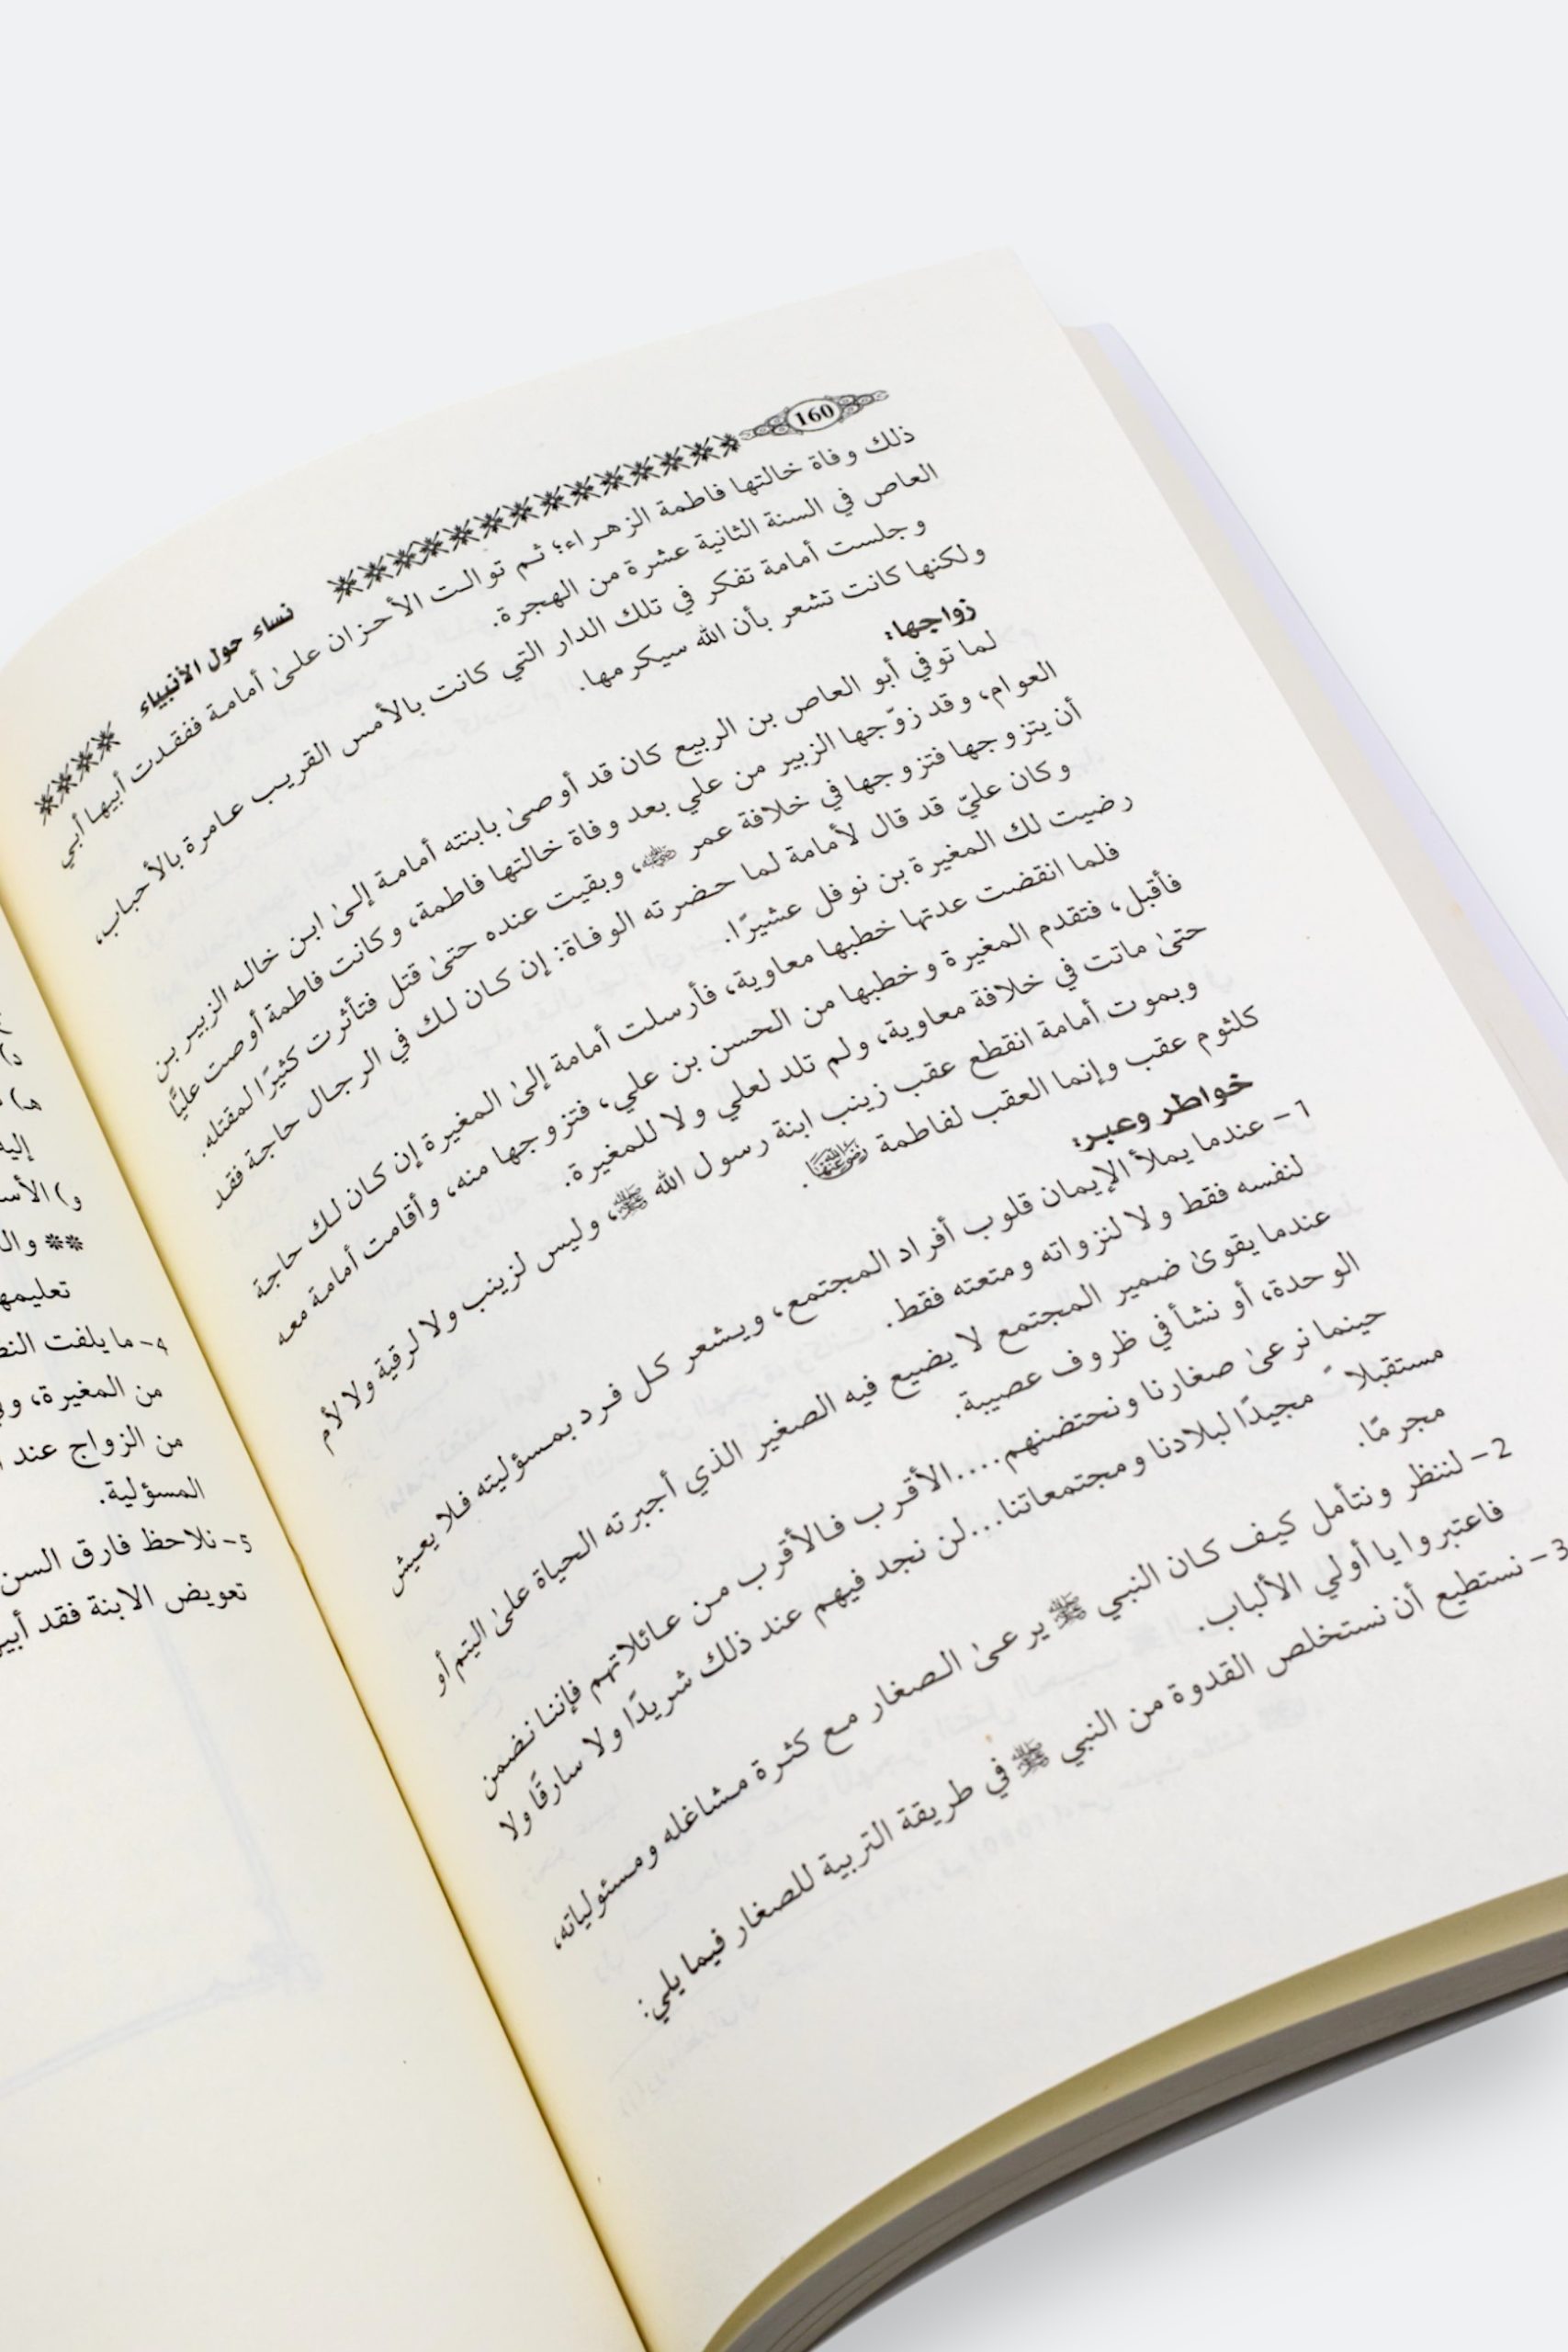 160 نساء حول الأنبياء
ذلك وفاة خالتها فاطمة الزهراء؛ ثم توالت الأحزان علىٰ أمامة ففقدت أبيها أبي
العاص في السنة الثانية عشرة من الهجرة.
وجلست أمامة تفكر في تلك الدار التي كانت بالأمس القريب عامرة بالأحباب،
ولكنها كانت تشعر بأن الله سيكرمها.
زواجها:
لما توفي أبو العاص بن الربيع كان قد أوصىٰ بابنته أمامة إلىٰ ابن خاله الزبير بن
العوام، وقد زوّجها الزبير من علي بعد وفاة خالتها فاطمة، وكانت فاطمة أوصت عليًّا
أن يتزوجها فتزوجها في خلافة عمر رضي الله عنه، وبقيت عنده حتىٰ قتل فتأثرت كثيرًا لمقتله.
وكان عليّ قد قال لأمامة لما حضرته الوفاة: إن كان لك في الرجال حاجة فقد
رضيت لك المغيرة بن نوفل عشيرًا.
فلما انقضت عدتها خطبها معاوية، فأرسلت أمامة إلىٰ المغيرة إن كان لك حاجة
فأقبل، فتقدم المغيرة وخطبها من الحسن بن علي، فتزوجها منه، وأقامت أمامة معه
حتىٰ ماتت في خلافة معاوية، ولم تلد لعلي ولا للمغيرة.
وبموت أمامة انقطع عقب زينب ابنة رسول الله ﷺ، وليس لزينب ولا لرقية ولا لأم
كلثوم عقب وإنما العقب لفاطمة رضي الله عنها.
خواطر وعبر:
1- عندما يملأ الإيمان قلوب أفراد المجتمع، ويشعر كل فرد بمسؤليته فلا يعيش
لنفسه فقط ولا لنزواته ومتعته فقط.
عندما يقوىٰ ضمير المجتمع لا يضيع فيه الصغير الذي أجبرته الحياة علىٰ اليتم أو
الوحدة، أو نشأ في ظروف عصيبة.
حينما نرعىٰ صغارنا ونحتضنهم....الأقرب فالأقرب من عائلاتهم فإننا نضمن
مستقبلاً مجيدًا لبلادنا ومجتمعاتنا...لن نجد فيهم عند ذلك شريدًا ولا سارقًا ولا
مجرمًا.
2- لننظر ونتأمل كيف كان النبي ﷺ يرعىٰ الصغار مع كثرة مشاغله ومسئولياته،
فاعتبروا يا أولي الألباب.
3- نستطيع أن نستخلص القدوة من النبي ﷺ في طريقة التربية للصغار فيما يلي:
د)
هـ)
و) الأس
** وال
تعليمه
4- ما يلفت الن
من المغيرة، و
من الزواج عند
المسؤلية.
5- نلاحظ فارق السن
تعويض الابنة فقد أبي